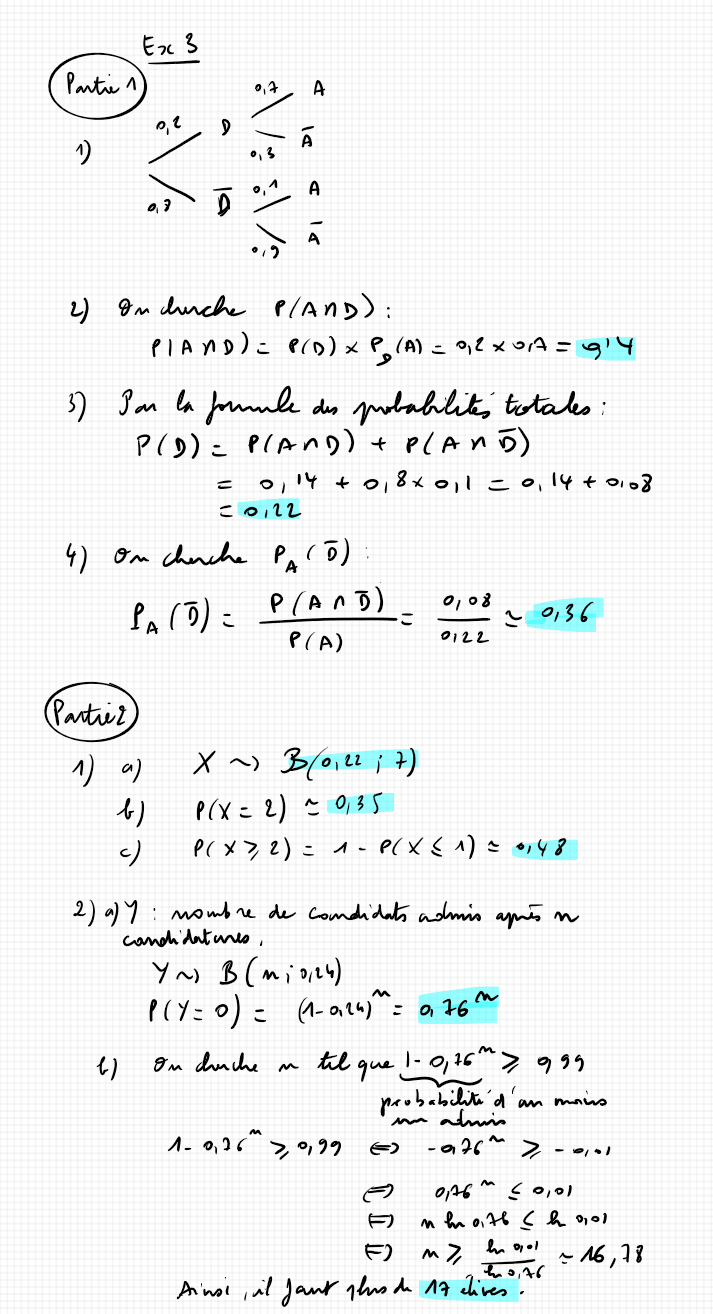 Ex 3
Partie 1
1)
0,2 D 0,7 A
0,3 A̅
0,8 D̅ 0,1 A
0,9 A̅
2) On cherche P(A∩D) :
P(A∩D) = P(D) × P_D(A) = 0,2 × 0,7 = 0,14
3) Par la formule des probabilités totales :
P(D) = P(A∩D) + P(A∩D̅)
= 0,14 + 0,8 × 0,1 = 0,14 + 0,08
= 0,22
4) On cherche P_A(D̅) :
P_A(D̅) = P(A∩D̅) / P(A) = 0,08 / 0,22 ≃ 0,36
Partie 2
1) a) X ~> B(0,22 ; 7)
b) P(X = 2) ≃ 0,35
c) P(X ⩾ 2) = 1 - P(X ≤ 1) ≃ 0,48
2) a) Y : nombre de candidats admis après n
candidatures.
Y ~> B(n ; 0,24)
P(Y = 0) = (1-0,24)^n = 0,76^n
b) On cherche n tel que 1 - 0,76^n ⩾ 0,99
probabilité d'au moins
un admis
1 - 0,76^n ⩾ 0,99 ⟺ -0,76^n ⩾ -0,01
⟺ 0,76^n ≤ 0,01
⟺ n ln 0,76 ≤ ln 0,01
⟺ n ⩾ ln 0,01 / ln 0,76 ≃ 16,78
Ainsi, il faut plus de 17 élèves.